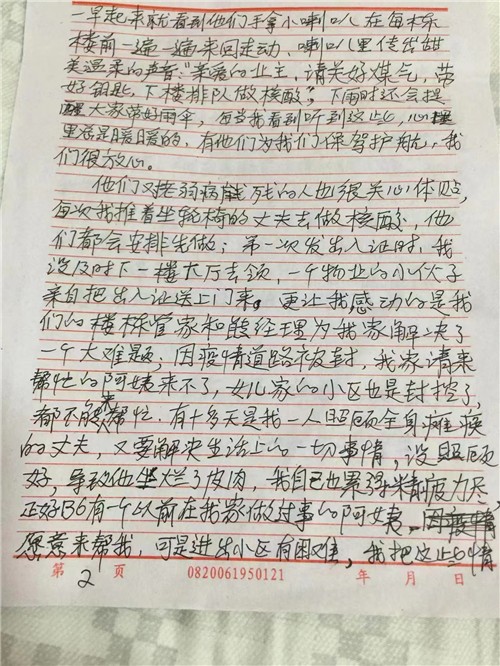 一早起来就看到他们手拿小喇叭在每栋
楼前一遍一遍来回走动、喇叭里传出甜
美温柔的声音："亲爱的业主，请关好煤气，带
好钥匙，下楼排队做核酸"，下雨时还会提
醒大家带好雨伞，每当我看到听到这些，心里
里总是暖暖的，有他们为我们保驾护航，我
们很放心。
他们对老弱病残的人也很关心体贴，
每次我推着坐轮椅的丈夫去做核酸，他
们都会安排先做；第一次发出入证时，我
没及时下一楼大厅去领，一个物业的小伙子
亲自把出入证送上门来。更让我感动的是我
们的楼栋管家和段经理为我家解决了
一个大难题，因疫情道路被封，我家请来
帮忙的阿姨来不了，女儿家的小区也是封控了，
都不能来帮忙．有十多天是我一人照顾全身瘫痪
的丈夫，又要解决生活上的一切事情，没照顾
好，导致他坐烂了皮肉，我自己也累得精疲力尽
正好B6有一个以前在我家做过事的阿姨，因疫情
愿意来帮我，可是进出小区有困难，我把这些情
第 2 页 0820061950121 年 月 日